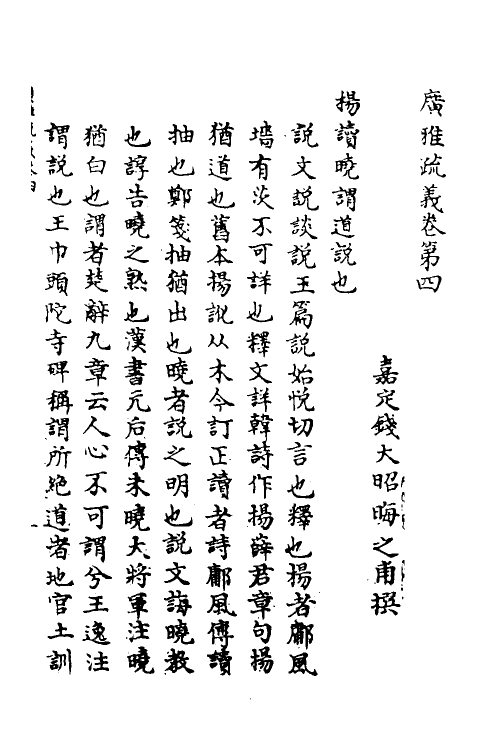 廣雅疏義卷第四
嘉定錢大昭晦之甫撰
揚讀曉謂道說也
說文說談說玉篇說始悅切言也釋也揚者鄘風
墻有茨不可詳也釋文詳韓詩作揚薛君章句揚
猶道也舊本揚訛从木今訂正讀者詩鄘風傳讀
抽也鄭箋抽猶出也曉者說之明也說文誨曉教
也諄告曉之熟也漢書元后傳未曉大將軍注曉
猶白也謂者楚辭九章云人心不可謂兮王逸注
謂說也王巾頭陀寺碑稱謂所絶道者地官土訓